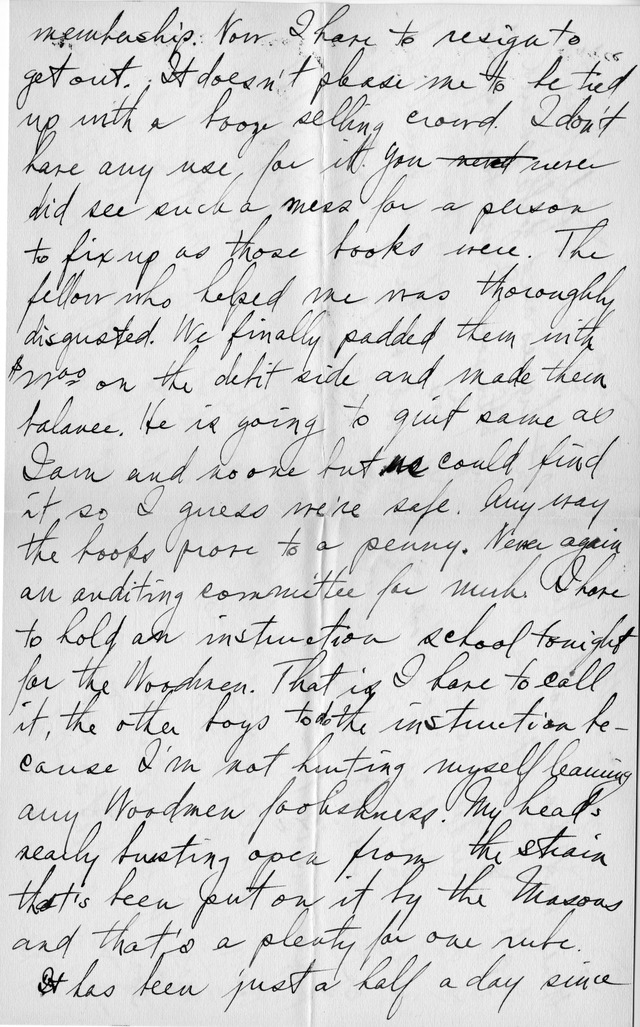 membership. Now I have to resign to
get out. It doesn't please me to be tied
up with a booze selling crowd. I don't
have any use for it. You never
did see such a mess for a person
to fix up as those books were. The
fellow who helped me was thoroughly
disgusted. We finally padded them with
on the debit side and made them
balance. He is going to quit same as
I am and no one but us could find
it so I guess we're safe. Any way
the books prove to a penny. Never again
an auditing committee for muh. I have
to hold an instruction school tonight
for the Woodmen. That is I have to call
it, the other boys to do the instruction be-
cause I'm not hurting myself learning
any Woodmen foolishness. My head's
nearly busting open from the strain
that's been put on it by the Masons
and that's a plenty for one rube.
It has been just a half a day since